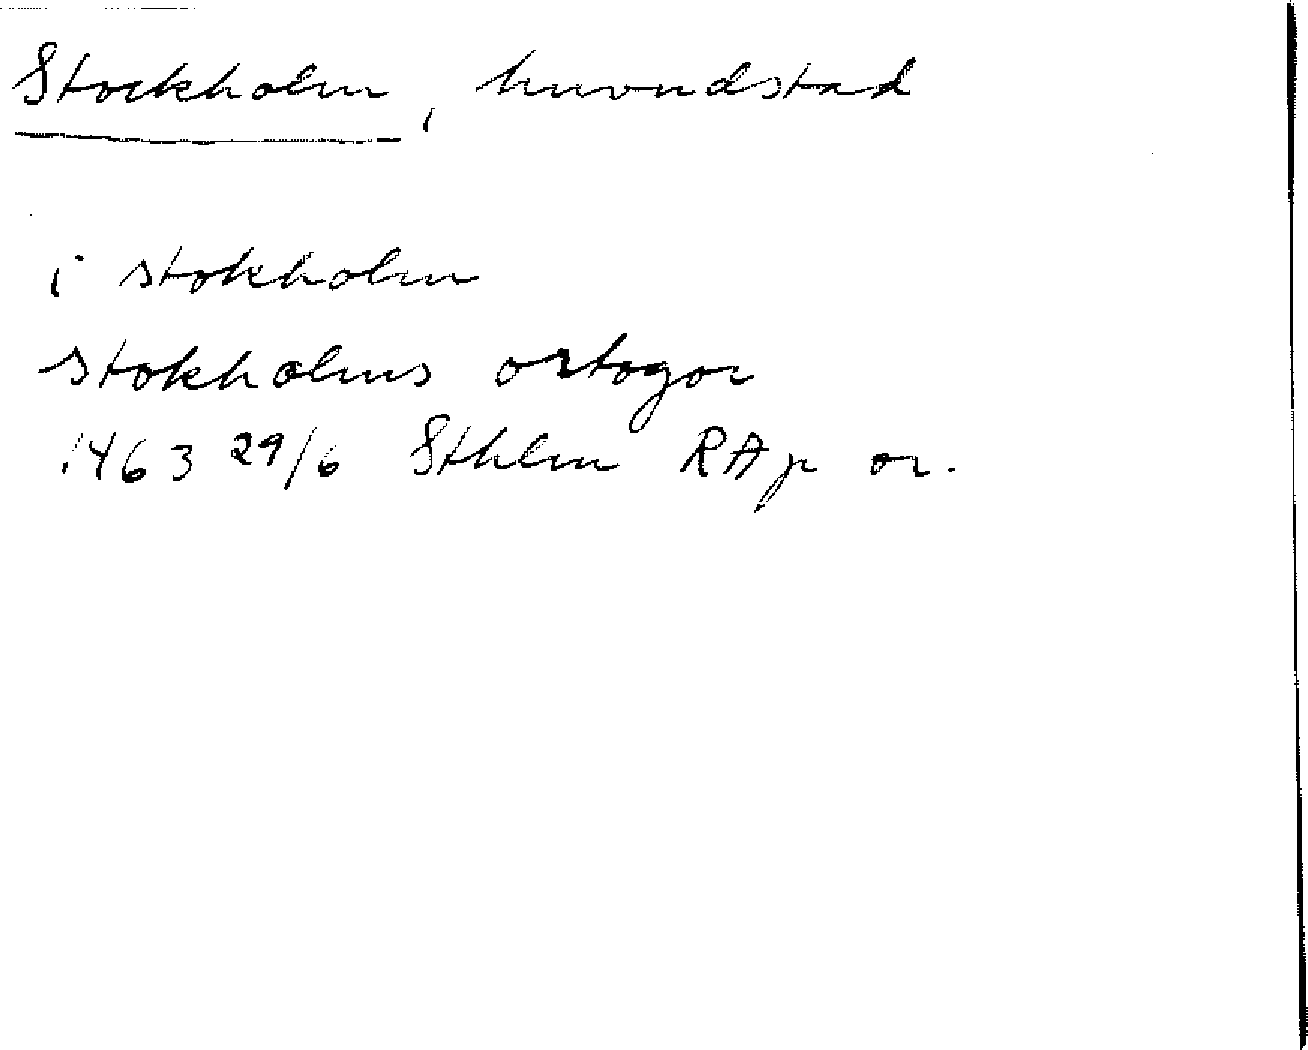 Stockholm, huvudstad
i stokholm
stokholms ortogor
1463 29/6 Sthlm RAp or.